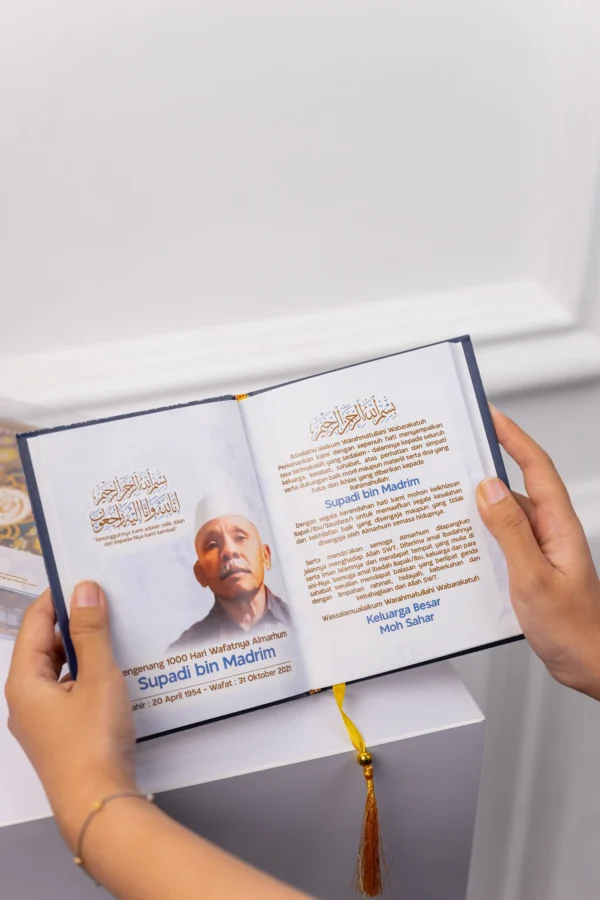 بسم الله الرحمن الرحيم
إنا لله وإنا إليه راجعون
"Sesungguhnya kami adalah milik Allah
dan kepada-Nya kami kembali"
engenang 1000 Hari Wafatnya Almarhum
Supadi bin Madrim
ahir : 20 April 1954 - Wafat : 31 Oktober 2021
بسم الله الرحمن الرحيم
Assalamu'alaikum Warahmatullahi Wabarakatuh
Perkenankan kami dengan sepenuh hati menyampaikan
rasa terimakasih yang sedalam - dalamnya kepada seluruh
keluarga, kerabat, sahabat, atas perhatian dan simpati
serta dukungan baik moril maupun materiil serta doa yang
tulus dan ikhlas yang diberikan kepada
Rahimahullah:
Supadi bin Madrim
Dengan segala kerendahan hati kami mohon keikhlasan
Bapak/Ibu/Saudara/i untuk memaafkan segala kesalahan
dan kekhilafan baik yang disengaja maupun yang tidak
disengaja oleh Almarhum semasa hidupnya.
Serta mendo'akan semoga Almarhum dilapangkan
jalannya menghadap Allah SWT. Diterima amal ibadahnya
serta iman Islamnya dan mendapat tempat yang mulia di
sisi-Nya. Semoga amal ibadah Bapak/Ibu, keluarga dan para
sahabat sekalian mendapat balasan yang berlipat ganda
dengan limpahan rahmat, hidayah, keberkahan dan
kebahagiaan dari Allah SWT.
Wassalamualaikum Warahmatullahi Wabarakatuh
Keluarga Besar
Moh Sahar